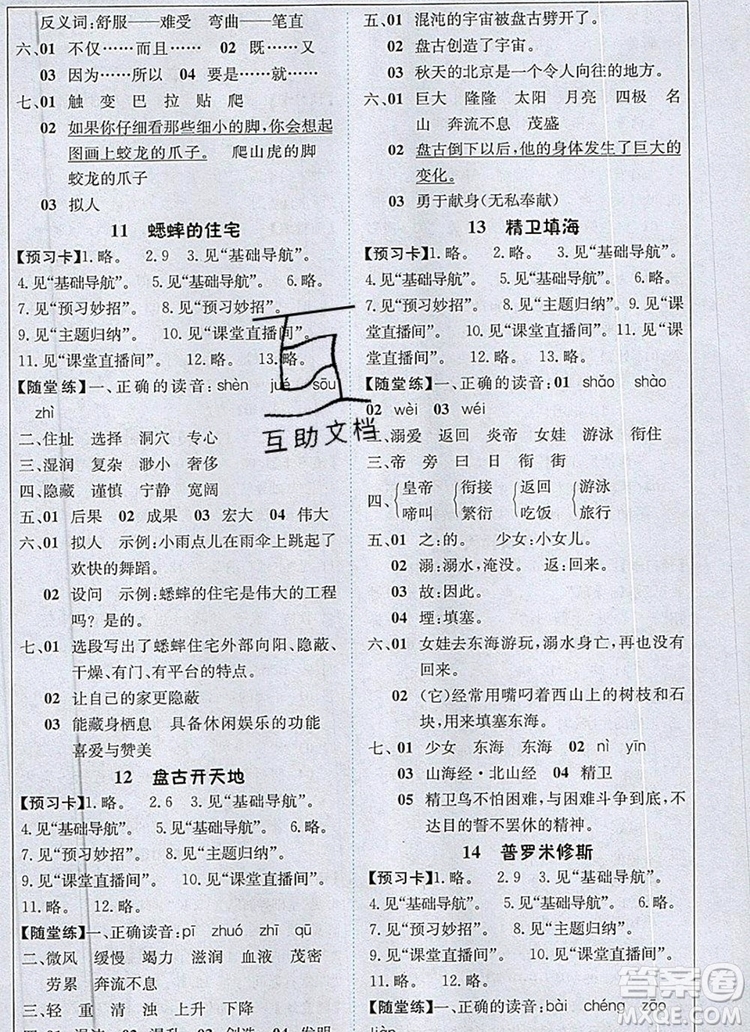 反义词:舒服——难受　弯曲——笔直
六、01　不仅……而且……　02　既……又
03　因为……所以　04　要是……就……
七、01　触　变　巴　拉　贴　爬
02　如果你仔细看那些细小的脚,你会想起
图画上蛟龙的爪子。　爬山虎的脚
蛟龙的爪子
03　拟人
11　蟋蟀的住宅
【预习卡】1.略。　2.9　3.见“基础导航”。
4.见“基础导航”。　5.见“基础导航”。　6.略。
7.见“预习妙招”。　8.见“预习妙招”。
9.见“主题归纳”。　10.见“课堂直播间”。
11.见“课堂直播间”。　12.略。　13.略。
【随堂练】一、正确的读音:shèn　jué　sōu
zhì
二、住址　选择　洞穴　专心
三、湿润　复杂　渺小　奢侈
四、隐藏　谨慎　宁静　宽阔
五、01　后果　02　成果　03　宏大　04　伟大
六、01　拟人　示例:小雨点儿在雨伞上跳起了
欢快的舞蹈。
02　设问　示例:蟋蟀的住宅是伟大的工程
吗? 是的。
七、01　选段写出了蟋蟀住宅外部向阳、隐蔽、
干燥、有门、有平台的特点。
02　让自己的家更隐蔽
03　能藏身栖息　具备休闲娱乐的功能
喜爱与赞美
12　盘古开天地
【预习卡】1.略。　2.6　3.见“基础导航”。
4.见“基础导航”。　5.见“基础导航”。　6.略。
7.见“预习妙招”。　8.见“主题归纳”。
9.见“课堂直播间”。　10.见“课堂直播间”。
11.略。　12.略。
【随堂练】一、正确读音:pī　zhuó　zhī　qū
二、微风　缓慢　竭力　滋润　血液　茂密
劳累　奔流不息
三、轻　重　清　浊　上升　下降
五、01　混沌的宇宙被盘古劈开了。
02　盘古创造了宇宙。
03　秋天的北京是一个令人向往的地方。
六、01　巨大　隆隆　太阳　月亮　四极　名
山　奔流不息　茂盛
02　盘古倒下以后,他的身体发生了巨大的
变化。
03　勇于献身(无私奉献)
13　精卫填海
【预习卡】1.略。　2.9　3.见“基础导航”。
4.见“基础导航”。　5.见“基础导航”。　6.略。
7.见“预习妙招”。　8.见“预习妙招”。　9.见“课
堂直播间”。　10.见“主题归纳”。　11.见“课堂
直播间”。　12.略。　13.略。
【随堂练】一、正确的读音:01　shǎo　shào
02　wèi　03　wéi
二、溺爱　返回　炎帝　女娃　游泳　衔住
三、帝　旁　曰　日　衔　街
四、皇帝　衔接　返回　游泳
啼叫　繁衍　吃饭　旅行
五、01　之:的。　少女:小女儿。
02　溺:溺水,淹没。　返:回来。
03　故:因此。
04　堙:填塞。
六、01　女娃去东海游玩,溺水身亡,再也没有
回来。
02　(它)经常用嘴叼着西山上的树枝和石
块,用来填塞东海。
七、01　少女　东海　东海　02　nì　yīn
03　山海经·北山经　04　精卫
05　精卫鸟不怕困难,与困难斗争到底,不
达目的誓不罢休的精神。
14　普罗米修斯
【预习卡】1.略。　2.9　3.见“基础导航”。
4.见“基础导航”。　5.见“基础导航”。　6.略。
7.见“预习妙招”。　8.见“预习妙招”。
9.见“主题归纳”。　10.见“课堂直播间”。
11.见“课堂直播间”。　12.略。　13.略。
【随堂练】一、正确的读音:bài　chéng　zāo
互助文档
答案圈